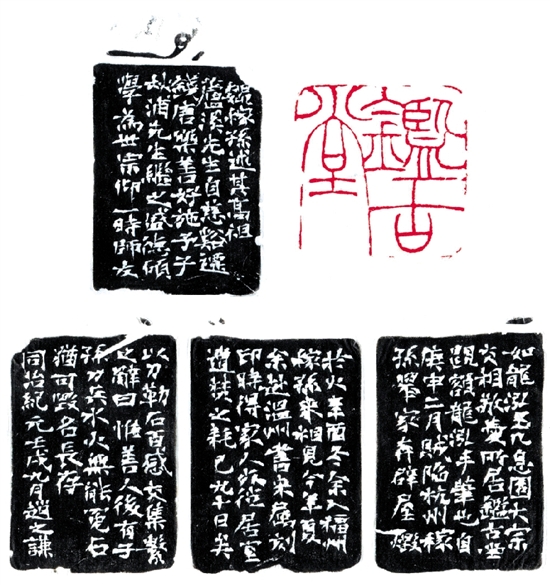 鑑古堂
魏稼孫述其高祖
瀘溪先生自慈谿遷
錢唐樂善好施予子
秋浦先生繼之盛德碩
學為世宗仰一時師友
如龍泓玉几息園大宗
交相敬愛所居鑑古堂
額龍泓手筆也自
庚申二月賊陷杭州稼
孫舉家奔辟屋燬
於火辛酉冬余入福州
稼孫來相見今年夏
余赴溫州書來屬刻
印時得家人從居室
遭焚之耗已九十日矣
以刀勒石百感交集繫
之辭曰惟善人後有子
孫刀兵水火無能冤石
猶可毀名長存
同治紀元壬戌九月趙之謙